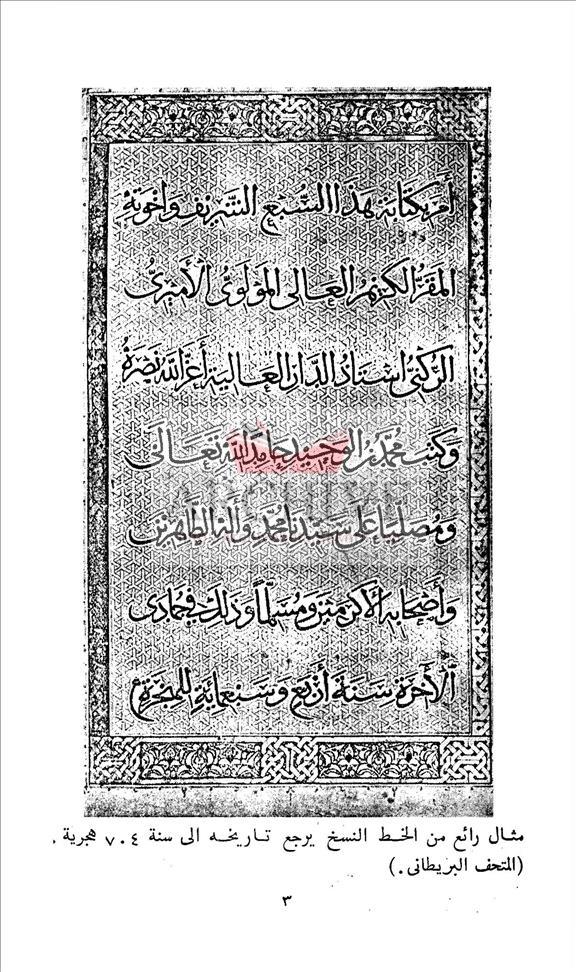 أمر بكتابة هذا السبع الشريف وأخوته
المقر الكريم العالى المولوى الأميرى
الركنى استاد الدار العالية أعز الله نصره
وكتب محمد بن الوحيد حامد الله تعالى
ومصليا على سيدنا محمد وآله الطاهرين
وأصحابه الأكرمين ومسلما وذلك فى جمادى
الآخرة سنة أربع وسبعماية للهجرة
ARCHIVE
مثال رائع من الخط النسخ يرجع تاريخه الى سنة ٧٠٤ هجرية .
(المتحف البريطانى .)
٣